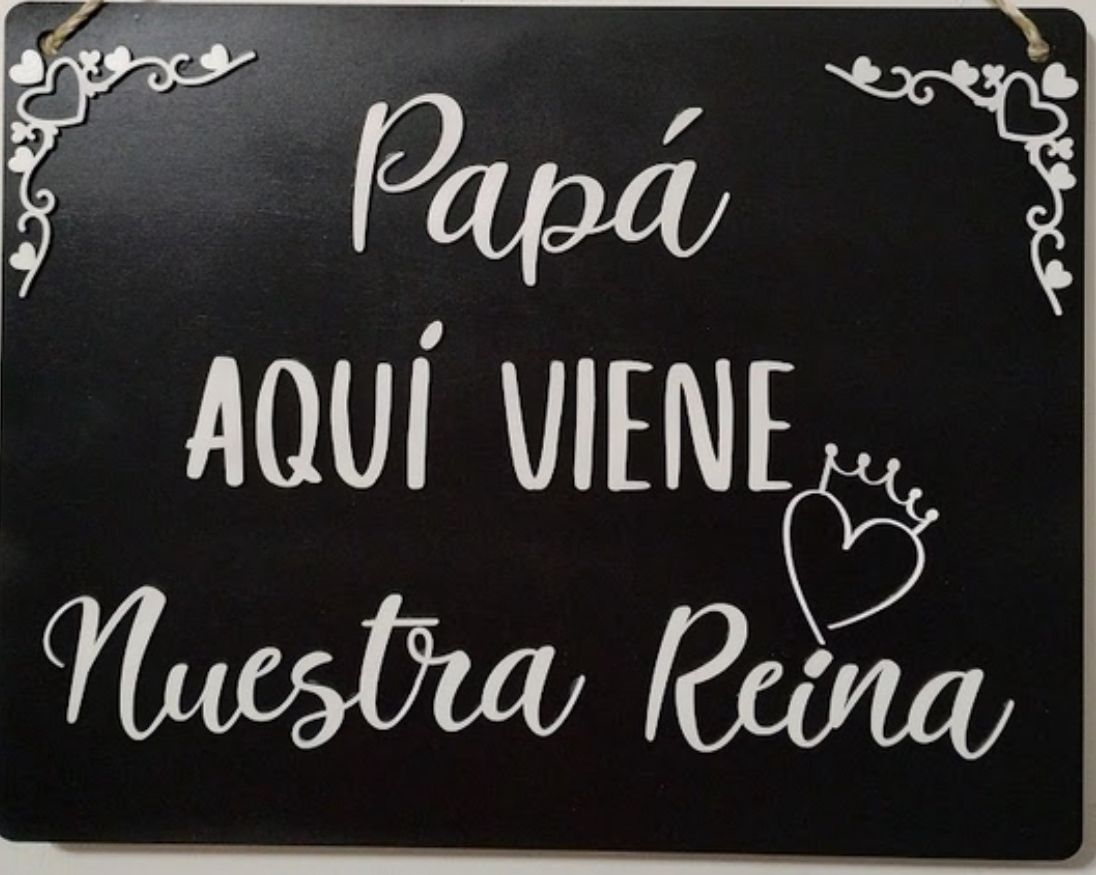 Papá
AQUÍ VIENE
Nuestra Reina